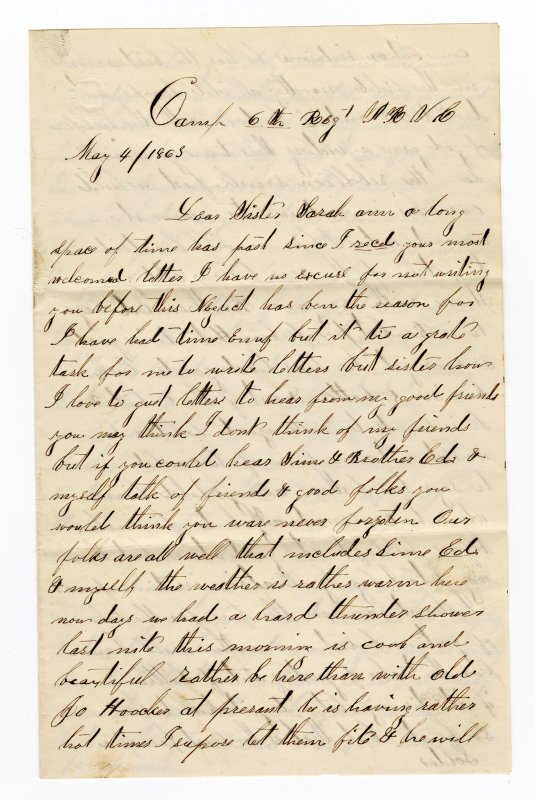 Camp 6th Regt V R V C
May 4/1863
Dear Sister Sarah ann a long
space of time has past since I recd your most
welcomed letter I have no excuse for not writing
you before this Neglect has ben the reason for
I have had time Enuf but it tis a grate
task for me to write letters but sister how
I love to get letters to hear from my good friends
you may think I dont think of my firends
but if you could hear Sime & Brother Ed &
myself talk of firends & good folks you
would think you ware never forgoten Our
folks are all well that includes Sime Ed
& myself the weather is rather warm here
now days we had a hard thunder shower
last nite this mornin is cool and
beautiful rather be here than with old
Jo Hoocker at presant he is having rather
hot times I supose let them fite & he will